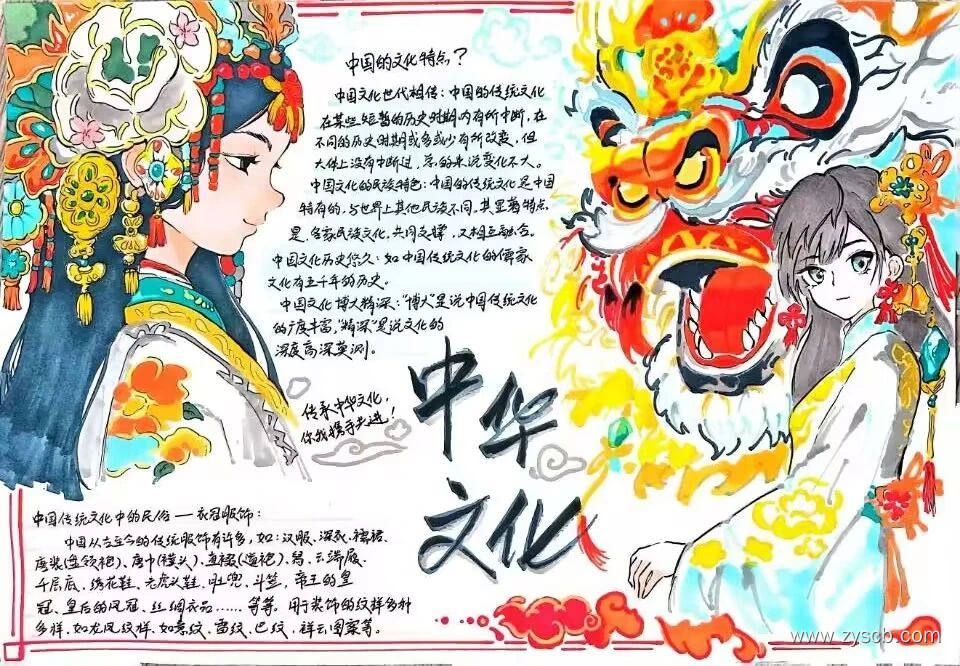 中国的文化特点？
中国文化世代相传：中国的传统文化
在某些短暂的历史时期内有所中断，在
不同的历史时期或多或少有所改变，但
大体上没有中断过，总的来说变化不大。
中国文化的民族特色：中国的传统文化是中国
特有的，与世界上其他民族不同。其显著特点
是，多家民族文化，共同支撑，又相互融合。
中国文化历史悠久：如中国传统文化的儒家
文化有五千年的历史。
中国文化博大精深：“博大”是说中国传统文化
的广度丰富，“精深”是说文化的
深度高深莫测。
传承中华文化，
你我携手共进！
中华
文化
中国传统文化中的民俗——衣冠服饰：
中国从古至今的传统服饰有许多，如：汉服、深衣、襦裙、
唐装(盘领袍)、唐巾(幞头)、直裰(道袍)、舄、云端履、
千层底、绣花鞋、老虎头鞋、肚兜、斗笠，帝王的皇
冠、皇后的凤冠、丝绸衣品……等等。用于装饰的纹样多种
多样，如龙凤纹样，如意纹，雷纹，巴纹，祥云图案等。
www.zyscb.com